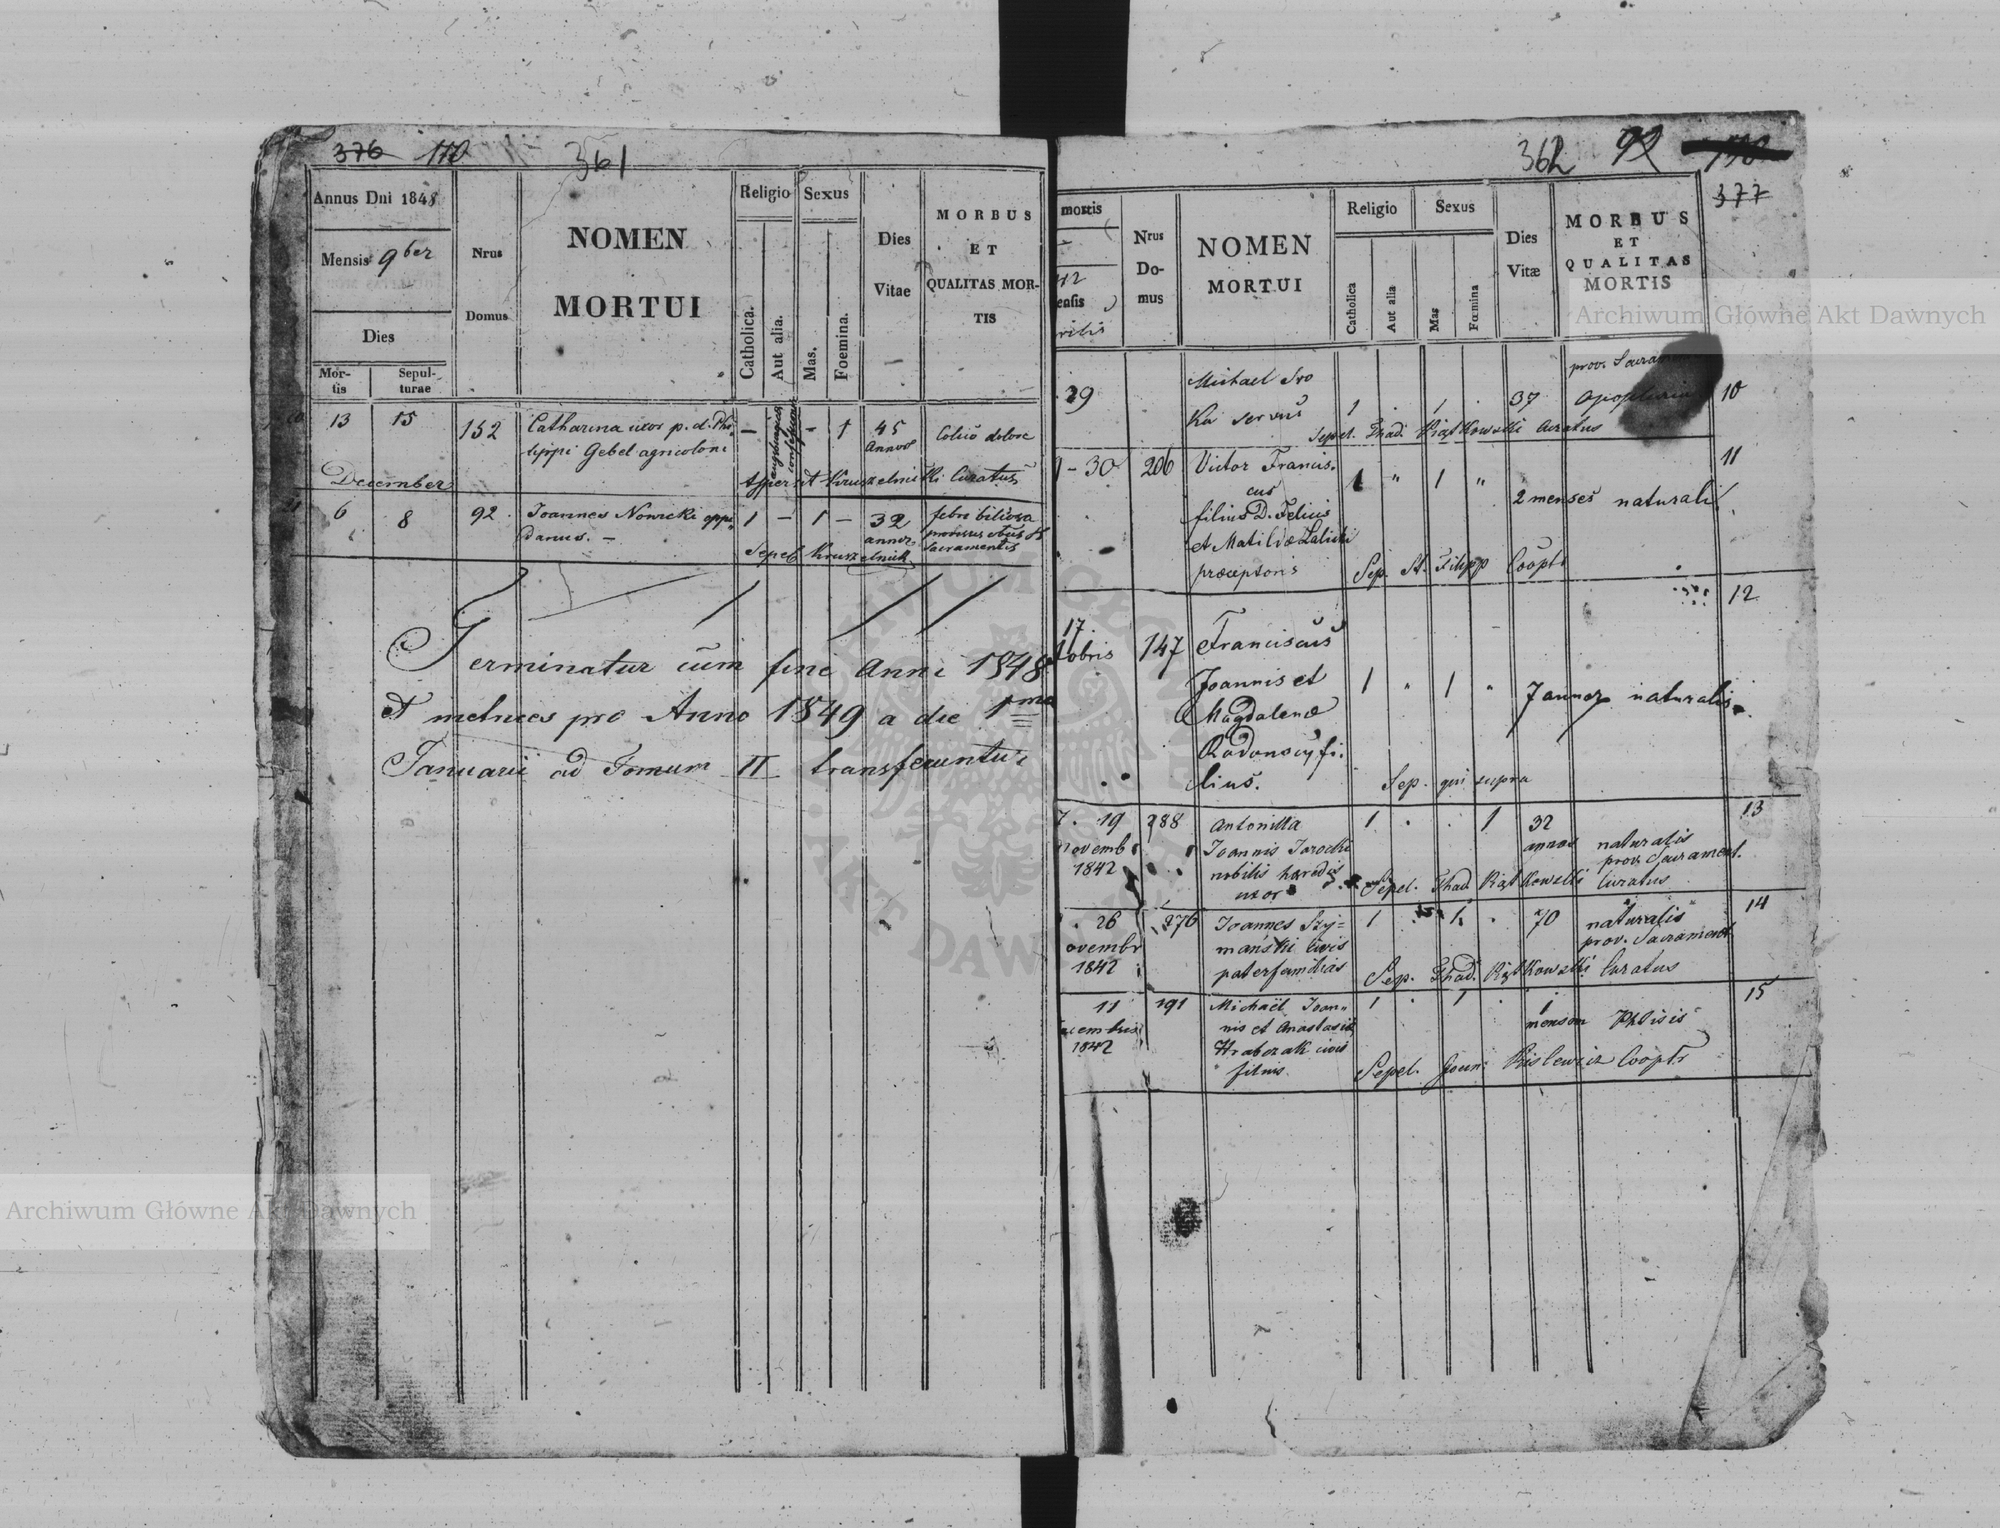 376 110
361
Annus Dni 1848
Mensis 9ber
Dies
Mortis
Sepulturae
Nrus
Domus
NOMEN
MORTUI
Religio
Catholica.
Aut alia.
Sexus
Mas.
Foemina.
Dies
Vitae
MORBUS
ET
QUALITAS MOR-
TIS
13 15 152 Catharina uxor p. d. Phi
lippi Gebel agricoloni
– – 1 45
Annos
Colico dolore
December
Curatus
6 8 92 Joannes Nowicki oppi
danus. –
1 – 1 – 32
annor
febre biliosa
provisus
Sacramentis
Sepel
Terminatur cum fine Anni 1848
et pro Anno 1849 a die 1ma
Januarii ad Tomum II transferuntur
362 92
377
mortis
Nrus
Do-
mus
NOMEN
MORTUI
Religio
Catholica
Aut alia
Sexus
Mas
Fœmina
Dies
Vitæ
MORBUS
ET
QUALITAS
MORTIS
29 Michael Sro
ka servus
1 . 1 . 37
prov. Sacram
10
Sepel. Thad. Piątkowski Curatus
30 206 Victor Francis.
cus
filius D. Felicis
et Matildæ Lalicki
præceptoris
1 " 1 " 2 menses naturalis
11
Sep. St. Filipp Coopt
17 147 Franciscus
Joannis et
Magdalenæ
fi.
lius.
1 " 1 " 7 annor naturalis
12
Sep. qui supra
19 288 Antonilla
Joannis Jarocki
nobilis hæredis
uxor
novemb
1842
1 . . 1 32
annos
naturalis
prov. Sacrament.
13
Sepel. Thad. Piątkowski Curatus
26 276 Joannes Szy-
mański civis
paterfamilias
ovembr
1842
1 1 70 naturalis
prov. Sacrament
14
Sep. Thad. Piątkowski Curatus
11 191 Michaël Joan-
nis et Anastasiæ
Hrabczak civis
filius.
1842
1 . 1 . 1
mensem Phtisis
15
Sepel. Joan. Kislewicz Cooptr
Archiwum Główne Akt Dawnych
Archiwum Główne Akt Dawnych
ARCHIWUM GŁÓWNE AKT DAWNYCH